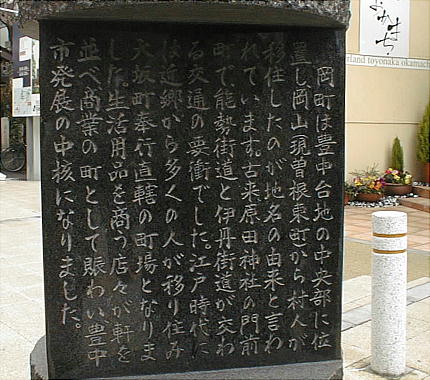 岡町は豊中台地の中央部に位
置し岡山現曽根東町から村人が
移住したのが地名の由来と言わ
れています。古来原田神社の門前
町で、能勢街道と伊丹街道が交わ
る交通の要衝でした。江戸時代に
は近郷から多くの人が移り住み
大坂町奉行直轄の町場となりま
した。生活用品を商う店々が軒を
並べ、商業の町として賑わい豊中
市発展の中核になりました。
rland toyonaka okamach